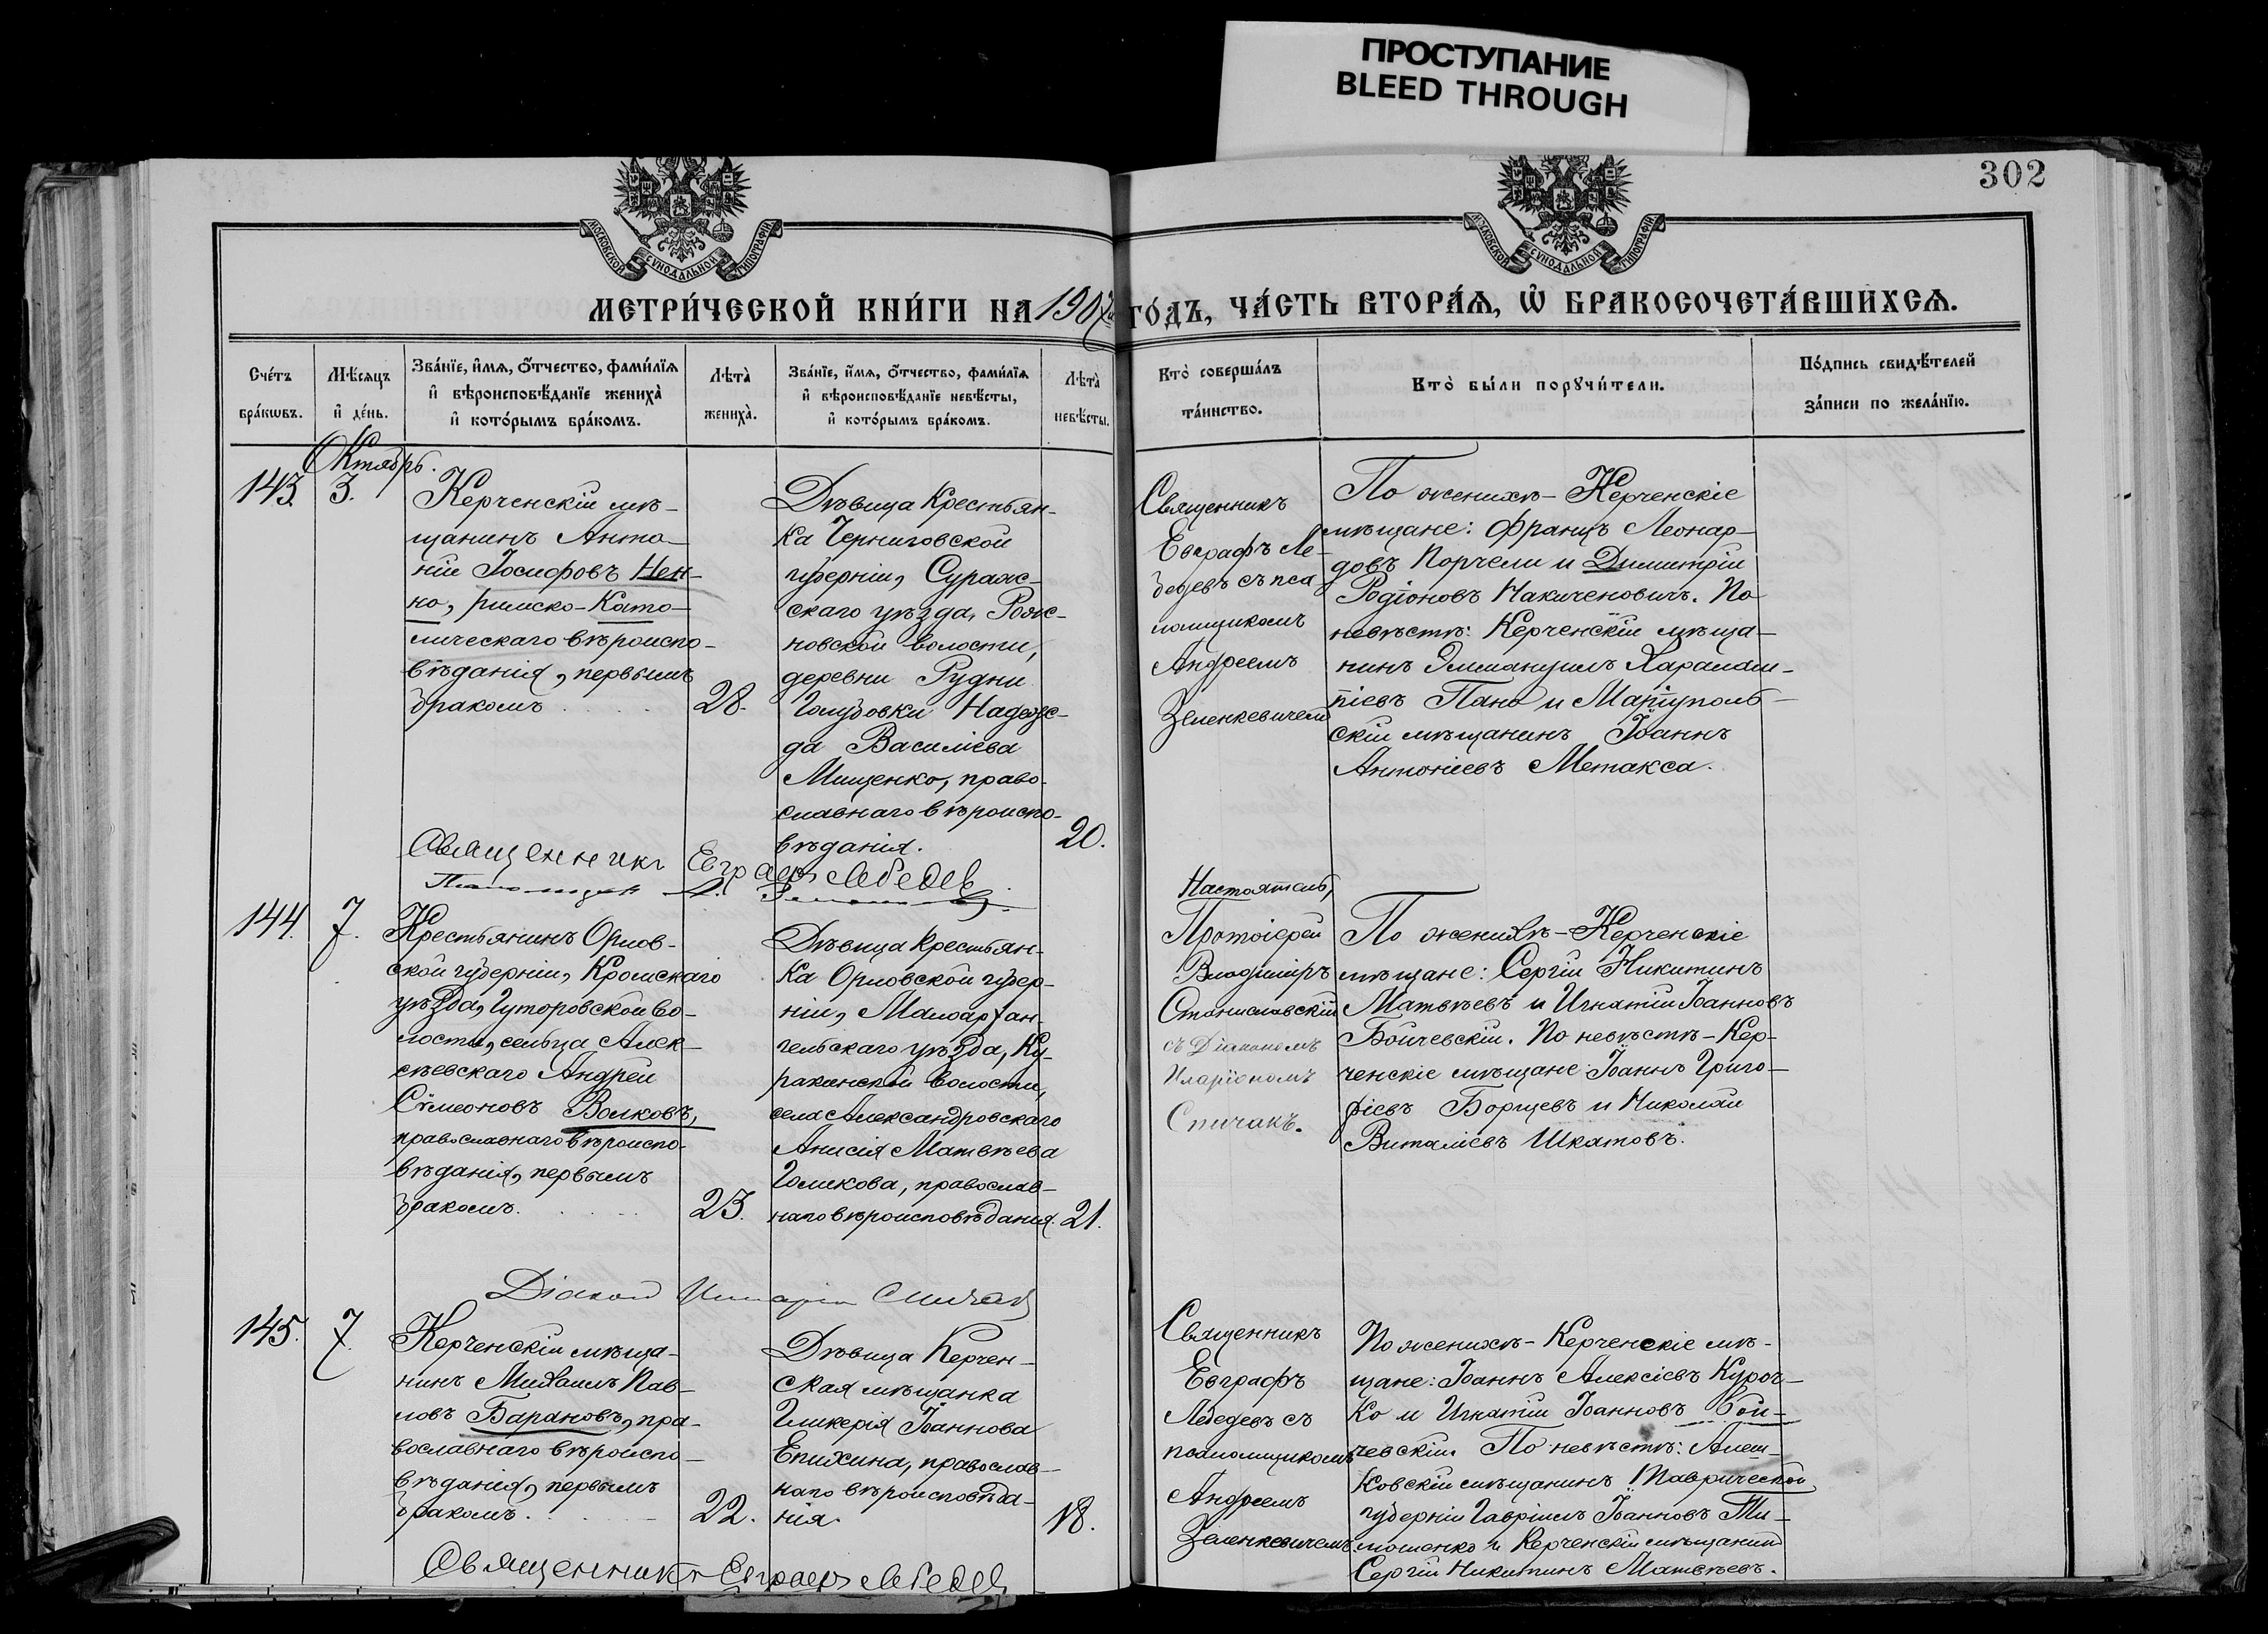 ПРОСТУПАНИЕ
BLEED THROUGH
302
МОСКОВСКОЙ СѴНОДАЛЬНОЙ ТИПОГРАФІИ
МОСКОВСКОЙ СѴНОДАЛЬНОЙ ТИПОГРАФІИ
МЕТРИ́ЧЕСКОЙ КНИ́ГИ НА 1907 ГО́ДЪ, ЧА́СТЬ ВТОРА́Я, Ѡ҆ БРАКОСОЧЕТА́ВШИХСѦ.
Сче́тъ
бра́кѡвъ.
Мѣ́сяцъ
и҆ де́нь.
Зва́нїе, и҆́мѧ, ѻ҆́тчество, фами́лїѧ
и҆ вѣроисповѣ́данїе жениха̀
и҆ кото́рымъ бра́комъ.
Лѣта̀
жениха̀.
Зва́нїе, и҆́мѧ, ѻ҆́тчество, фами́лїѧ
и҆ вѣроисповѣ́данїе невѣ́сты,
и҆ кото́рымъ бра́комъ.
Лѣта̀
невѣ́сты.
Кто̀ соверша́лъ
та́инство.
Кто̀ бы́ли порꙋчи́тели.
По́дпись свидѣ́телей
за́писи по жела́нїю.
Октябрь.
143.
3.
Керченскій мѣ-
щанинъ Анто-
ній Іосифовъ Нен-
но, римско-като-
лическаго вѣроиспо-
вѣданія, первымъ
бракомъ
28.
Дѣвица крестьян-
ка Черниговской
губерніи, Сураж-
скаго уѣзда, Рож-
новской волости,
деревни Рудни
Голубовки Надеж-
да Василіева
Мищенко, право-
славнаго вѣроиспо-
вѣданія.
20.
Священникъ
Евграфъ Ле-
бедевъ съ пса
ломщикомъ
Андреемъ
Зеленкевичемъ
По женихѣ - Керченскіе
мѣщане: Францъ Леонар-
довъ Порчели и Димитрій
Родіоновъ Накиченовичъ. По
невѣстѣ: Керченскій мѣща-
нинъ Эммануилъ Харалам-
піевъ Пано и Маріуполь-
скій мѣщанинъ Іоаннъ
Антоніевъ Метакса.
Священникъ Евграфъ Лебедевъ
144.
7.
Крестьянинъ Орлов-
ской губерніи, Кромскаго
уѣзда, Гуторовской во-
лости, сельца Алек-
сѣевскаго Андрей
Сѵмеоновъ Волковъ,
православнаго вѣроиспо-
вѣданія, первымъ
бракомъ.
23.
Дѣвица крестьян-
ка Орловской губер-
ніи, Малоархан-
гельскаго уѣзда, Ку-
ракинской волости,
села Александровскаго
Анисія Матвѣева
Голикова, православ-
наго вѣроисповѣданія.
21.
Настоятель,
Протоіерей
Владиміръ
Станиславскій
съ Діакономъ
Иларіономъ
Спичакъ.
По женихѣ - Керченскіе
мѣщане: Сергій Никитинъ
Матвѣевъ и Игнатій Іоанновъ
Бойчевскій. По невѣстѣ - Кер-
ченскіе мѣщане Іоаннъ Григо-
ріевъ Борщевъ и Николай
Виталіевъ Шкатовъ.
Діаконъ Иларіонъ Спичакъ
145.
7.
Керченскій мѣща-
нинъ Михаилъ Пав-
ловъ Барановъ, пра-
вославнаго вѣроиспо-
вѣданія, первымъ
бракомъ.
22.
Дѣвица Керчен-
ская мѣщанка
Гликерія Іоаннова
Епихина, православ-
наго вѣроисповѣда-
нія.
18.
Священникъ
Евграфъ
Лебедевъ съ
псаломщикомъ
Андреемъ
Зеленкевичемъ
По женихѣ - Керченскіе мѣ-
щане: Іоаннъ Алексіевъ Куроч-
ко и Игнатій Іоанновъ Бой-
чевскій. По невѣстѣ: Алеш-
ковскій мѣщанинъ Таврической
губерніи Гавріилъ Іоанновъ Ти-
мошенко и Керченскій мѣщанинъ
Сергій Никитинъ Матвѣевъ.
Священникъ Евграфъ Лебедевъ